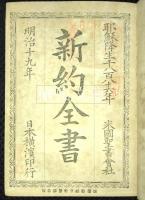 耶穌降生千八百八十六年
米國聖書會社
新約全書
明治十九年
日本横濱印行